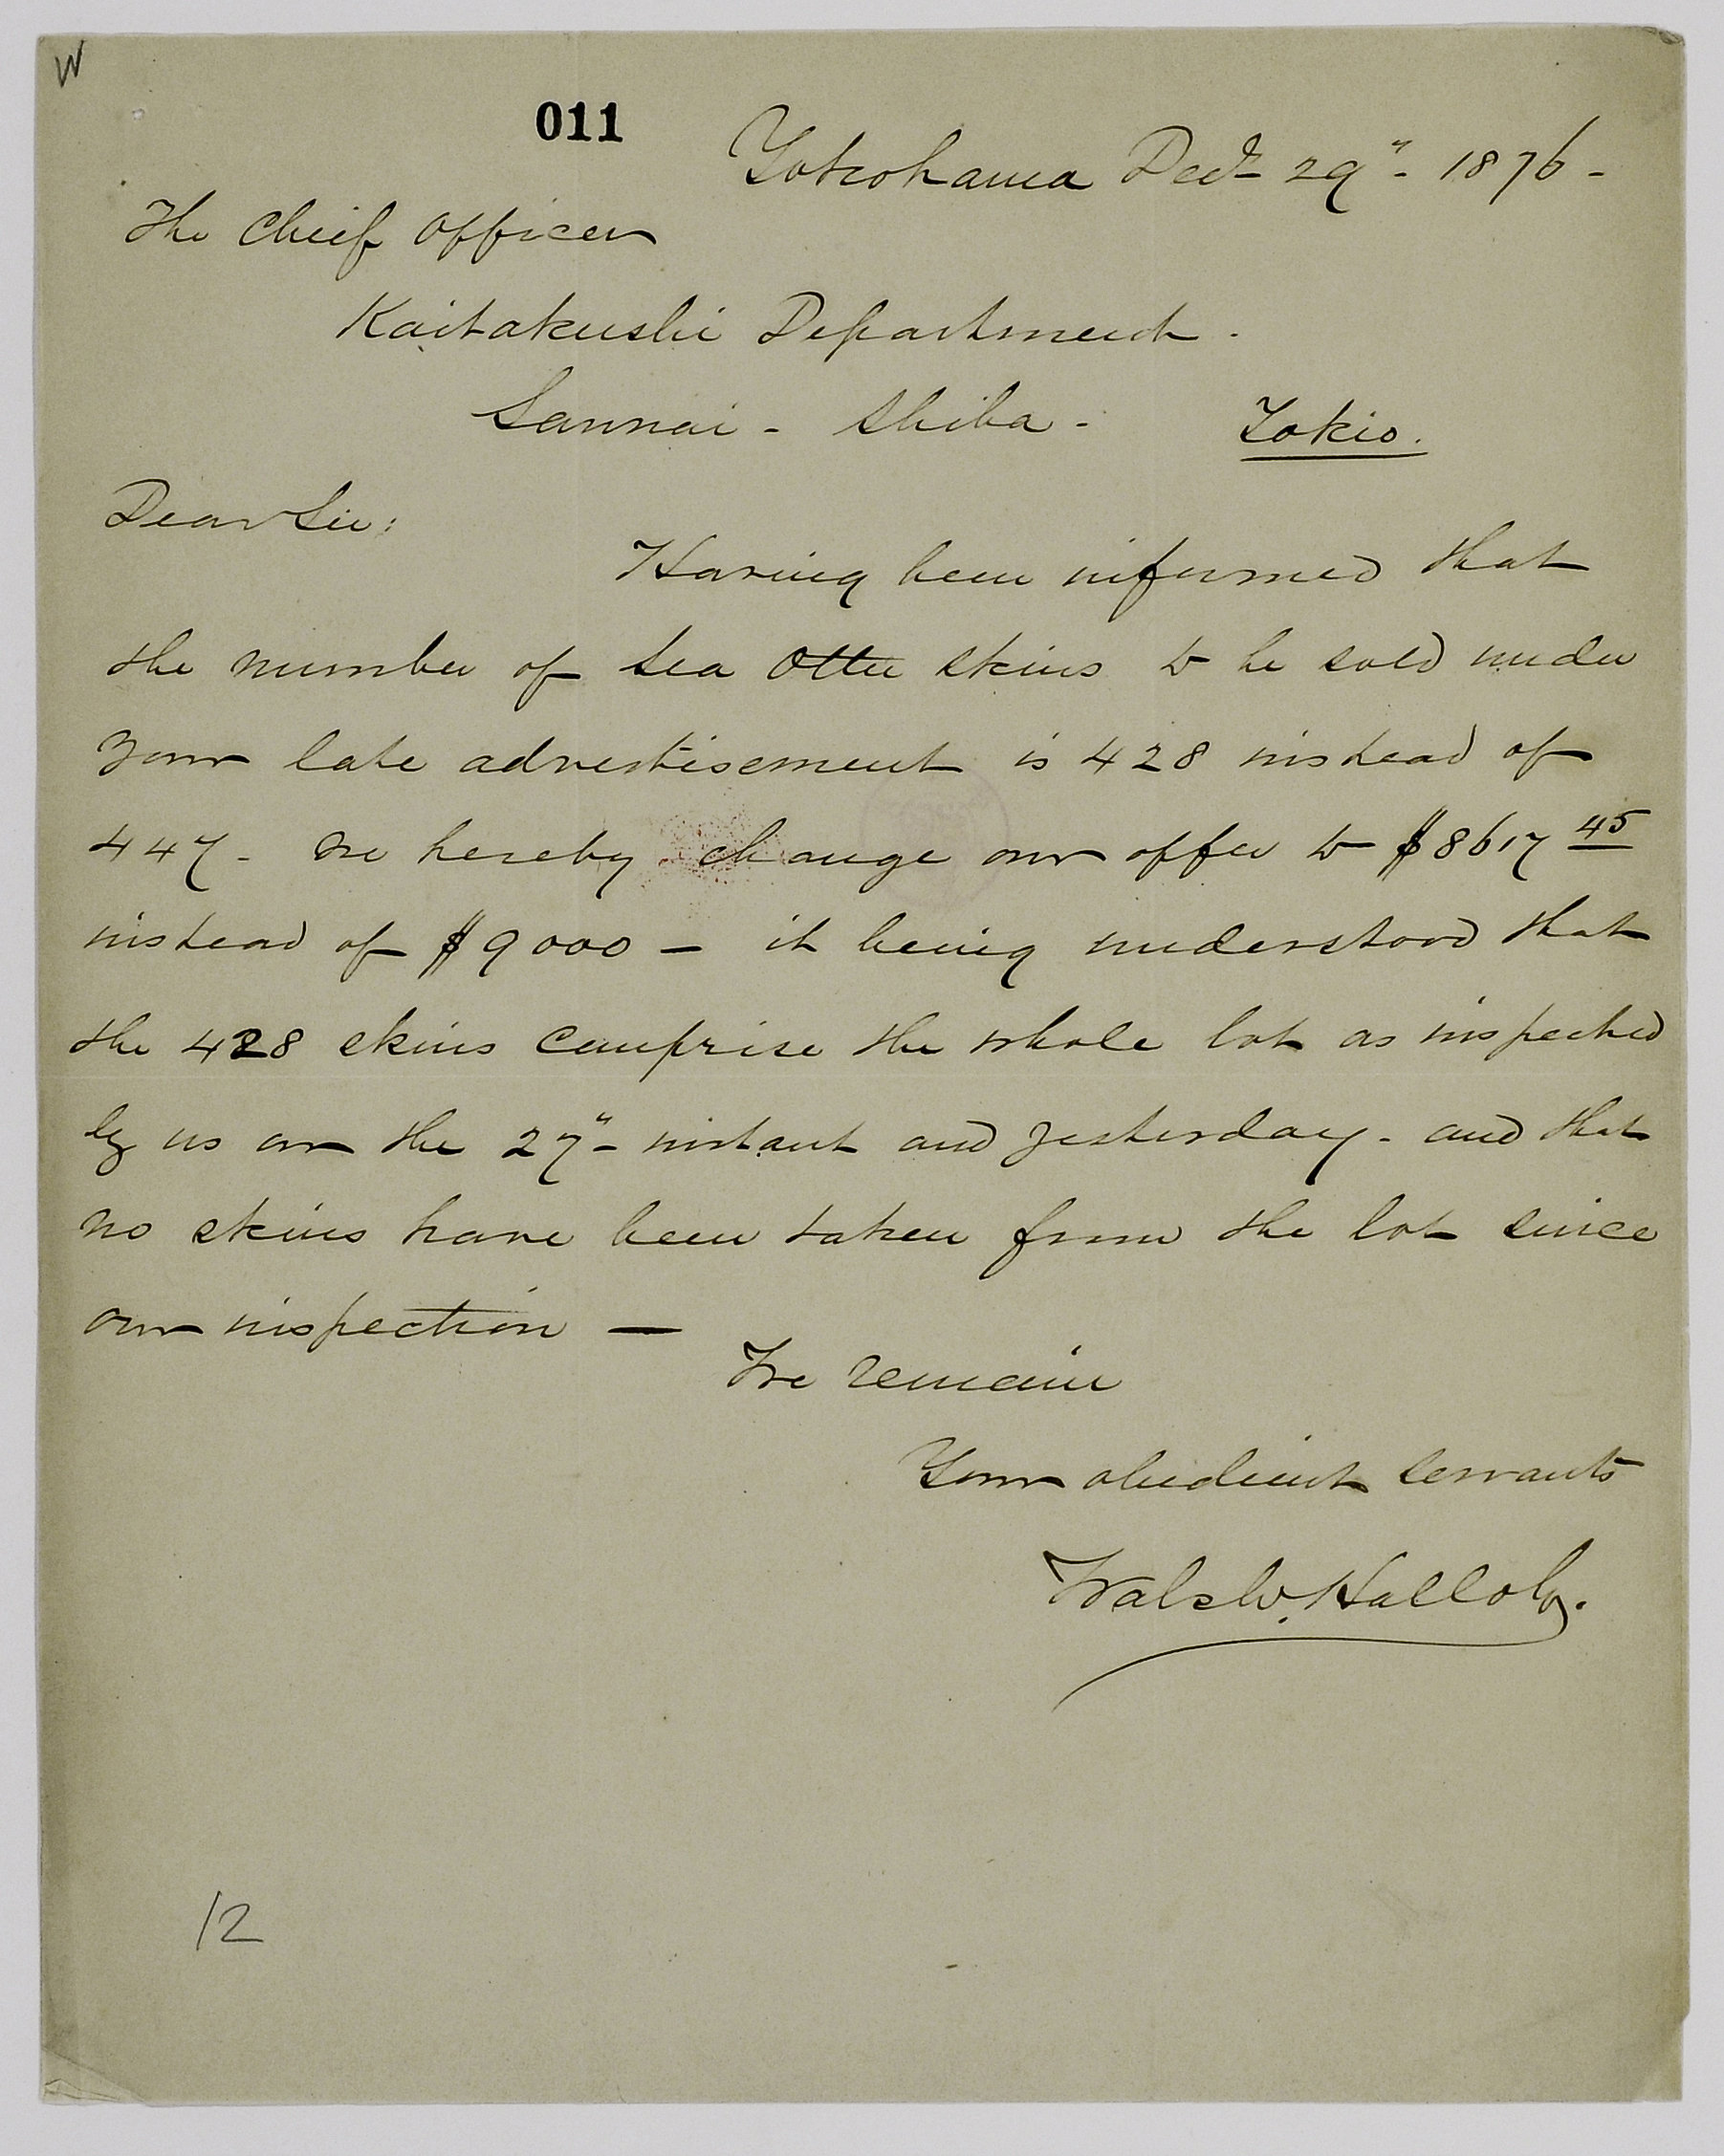 W
011
Yokohama Decr 29" - 1876 -
The Chief Officer
Kaitakushi Department .
Sannai - Shiba -
Tokio.
Dear Sir:
Having been informed that
the number of Sea Otter skins to be sold under
your late advertisement is 428 instead of
447 - we hereby change our offer to $8617 45
instead of $9000 — it being understood that
the 428 skins comprise the whole lot as inspected
by us on the 27" - instant and yesterday - and that
no skins have been taken from the lot since
our inspection —
We remain
Your obedient servants
Walsh. Hall & Co.
12